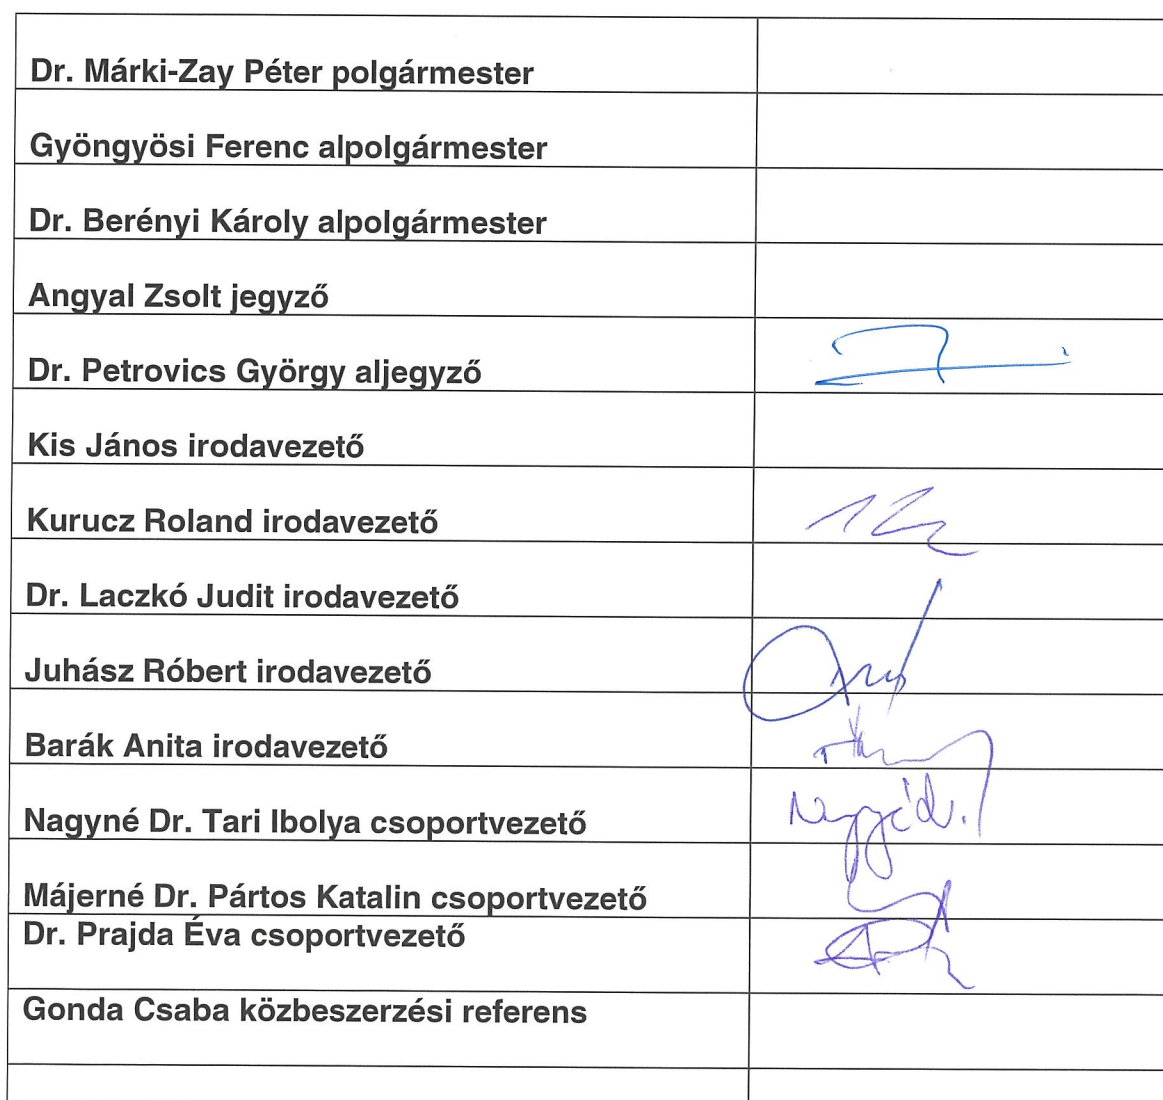 Dr. Márki-Zay Péter polgármester
Gyöngyösi Ferenc alpolgármester
Dr. Berényi Károly alpolgármester
Angyal Zsolt jegyző
Dr. Petrovics György aljegyző
Kis János irodavezető
Kurucz Roland irodavezető
Dr. Laczkó Judit irodavezető
Juhász Róbert irodavezető
Barák Anita irodavezető
Nagyné Dr. Tari Ibolya csoportvezető
Májerné Dr. Pártos Katalin csoportvezető
Dr. Prajda Éva csoportvezető
Gonda Csaba közbeszerzési referens